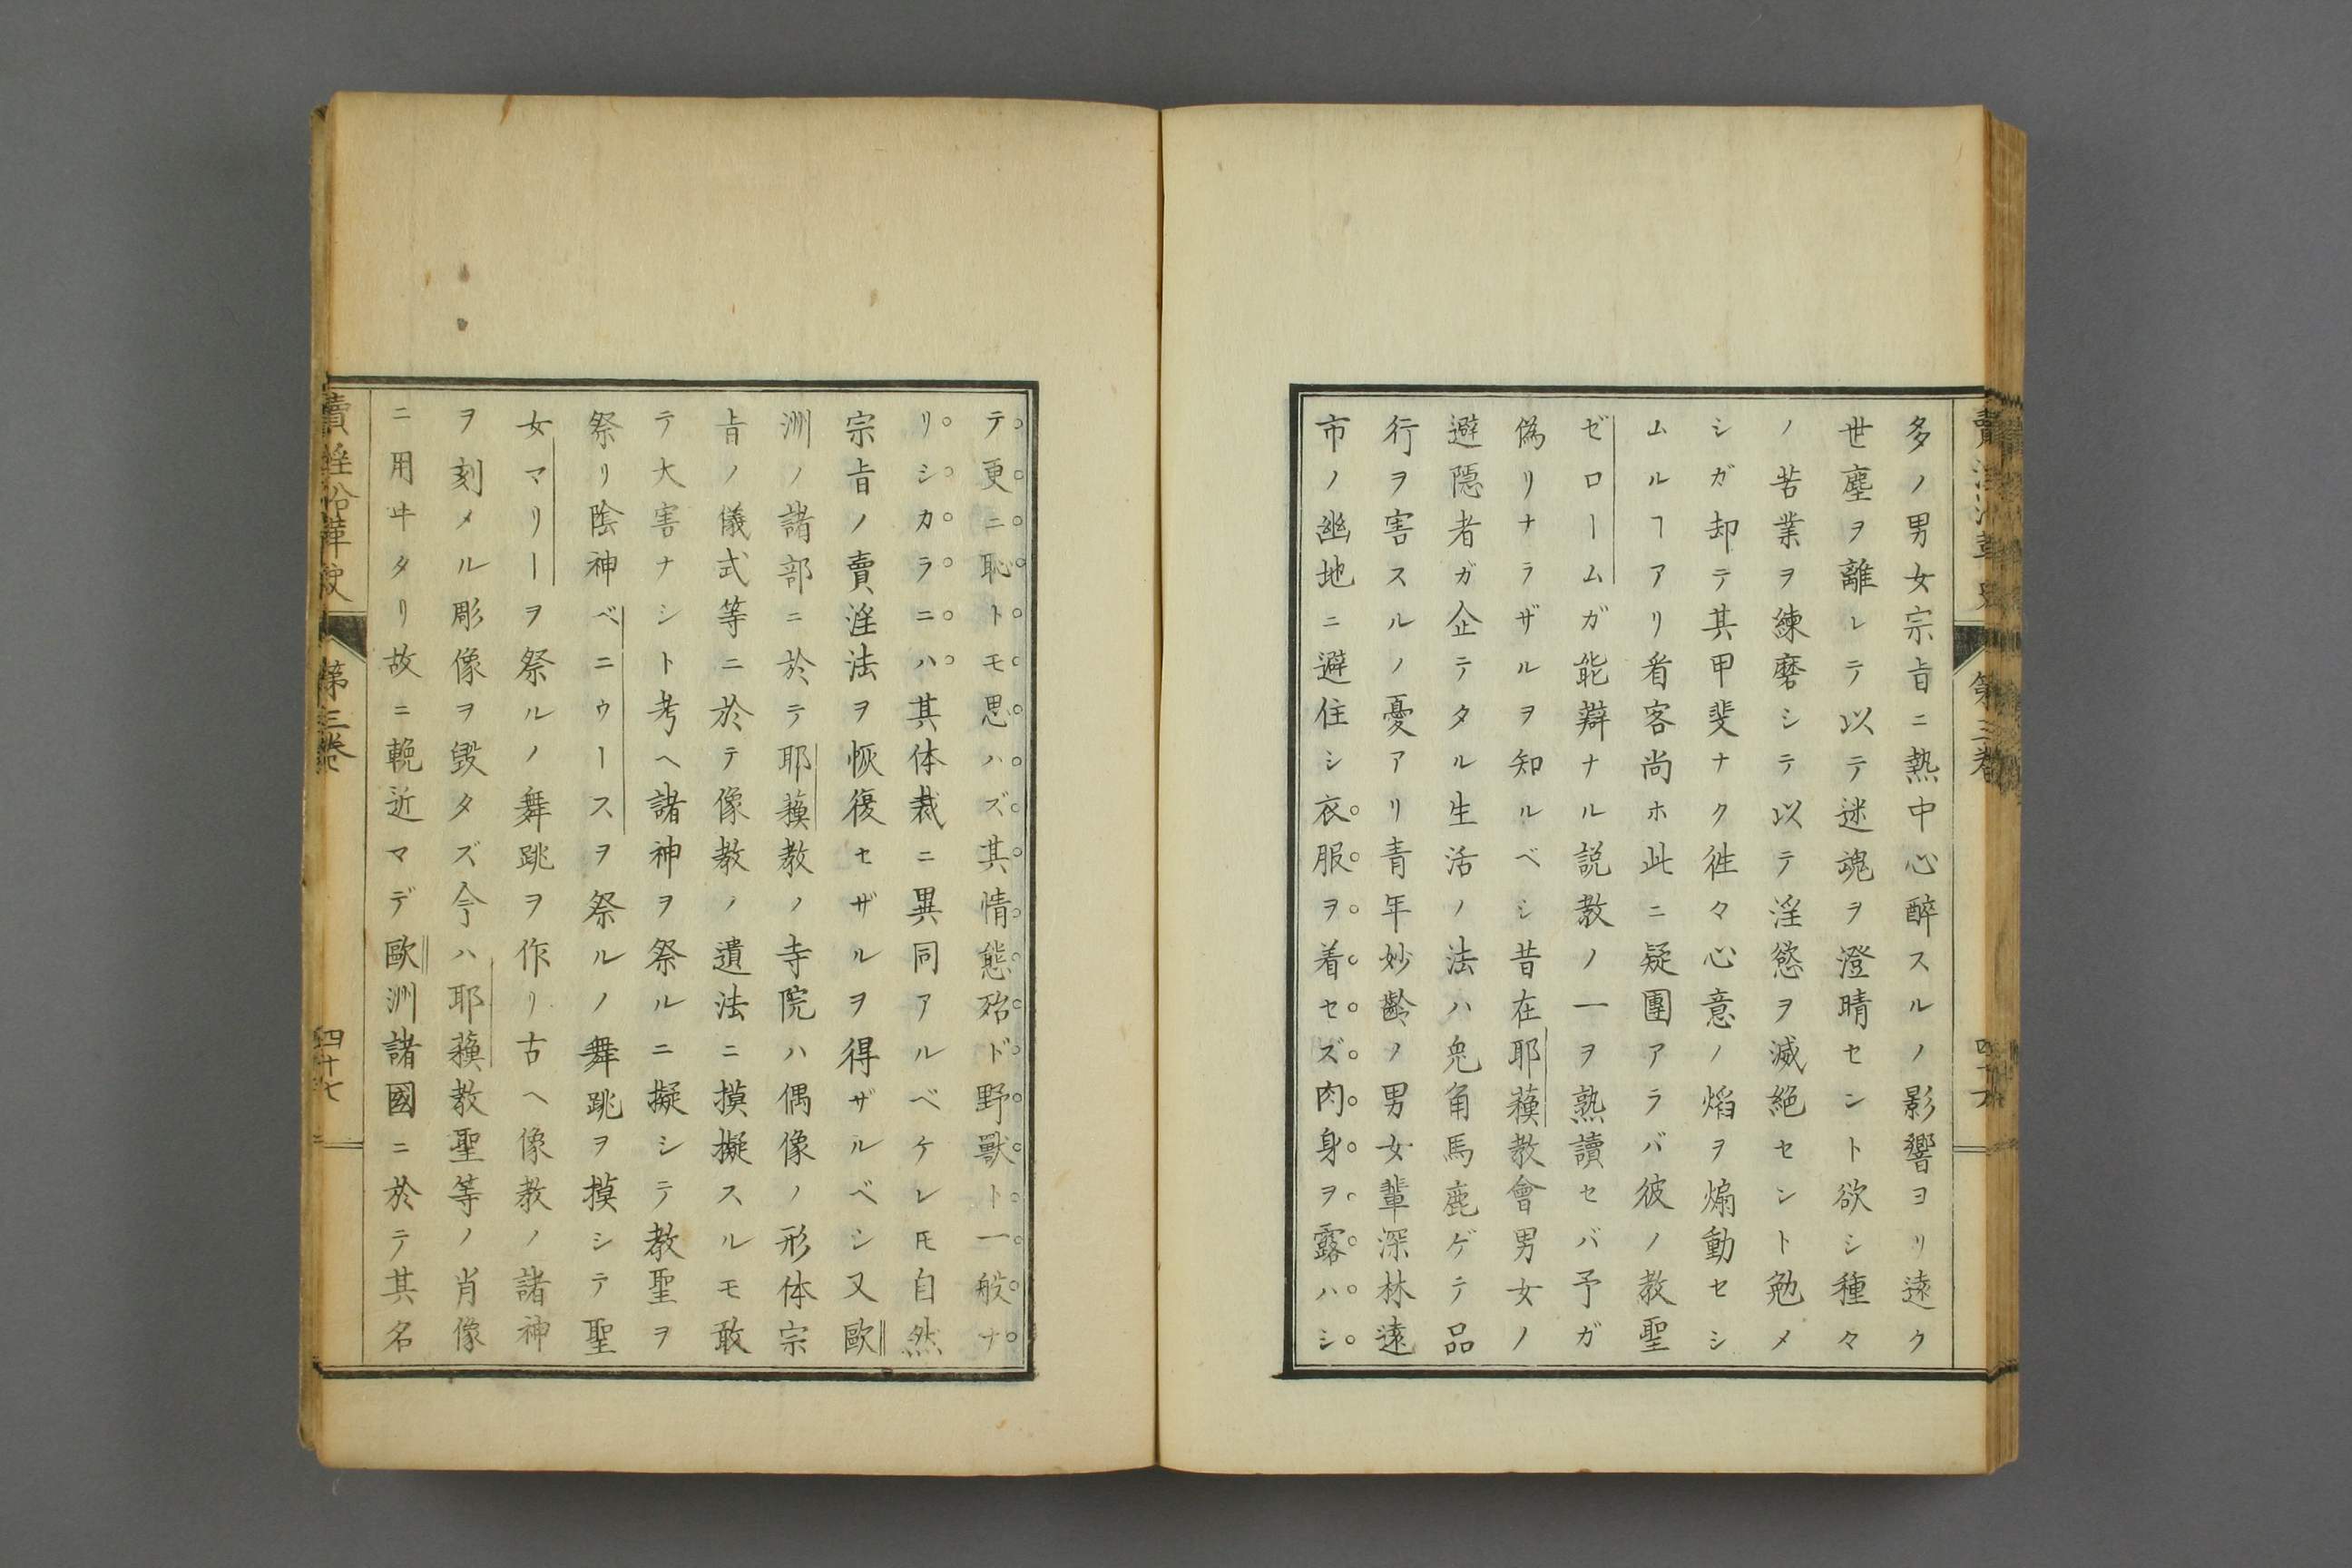 多ノ男女宗旨ニ熱中心醉スルノ影響ヨリ遠ク
世塵ヲ離レテ以テ迷魂ヲ澄晴セント欲シ種々
ノ苦業ヲ練磨シテ以テ淫慾ヲ滅絶セント勉メ
シガ却テ其甲斐ナク徃々心意ノ焰ヲ煽動セシ
ムルヿアリ看客尚ホ此ニ疑團アラバ彼ノ教聖
ゼロームガ能辯ナル説教ノ一ヲ熟讀セバ予ガ
偽リナラザルヲ知ルベシ昔在耶蘓教會男女ノ
避隠者ガ企テタル生活ノ法ハ兎角馬鹿ゲテ品
行ヲ害スルノ憂アリ青年妙齢ノ男女輩深林遠
市ノ幽地ニ避住シ衣服ヲ着セズ肉身ヲ露ハシ
テ更ニ恥トモ思ハズ其情態殆ド野獸ト一般ナ
リシカラニハ其体裁ニ異同アルベケレ𪜈自然
宗旨ノ賣淫法ヲ恢復セザルヲ得ザルベシ又歐
洲ノ諸部ニ於テ耶蘓教ノ寺院ハ偶像ノ形体宗
旨ノ儀式等ニ於テ像教ノ遺法ニ摸擬スルモ敢
テ大害ナシト考ヘ諸神ヲ祭ルニ擬シテ教聖ヲ
祭リ陰神ベニウースヲ祭ルノ舞跳ヲ摸シテ聖
女マリーヲ祭ルノ舞跳ヲ作リ古ヘ像教ノ諸神
ヲ刻メル彫像ヲ毀タズ今ハ耶蘓教聖等ノ肖像
ニ用ヰタリ故ニ輓近マデ歐洲諸國ニ於テ其名
第三卷
四十七